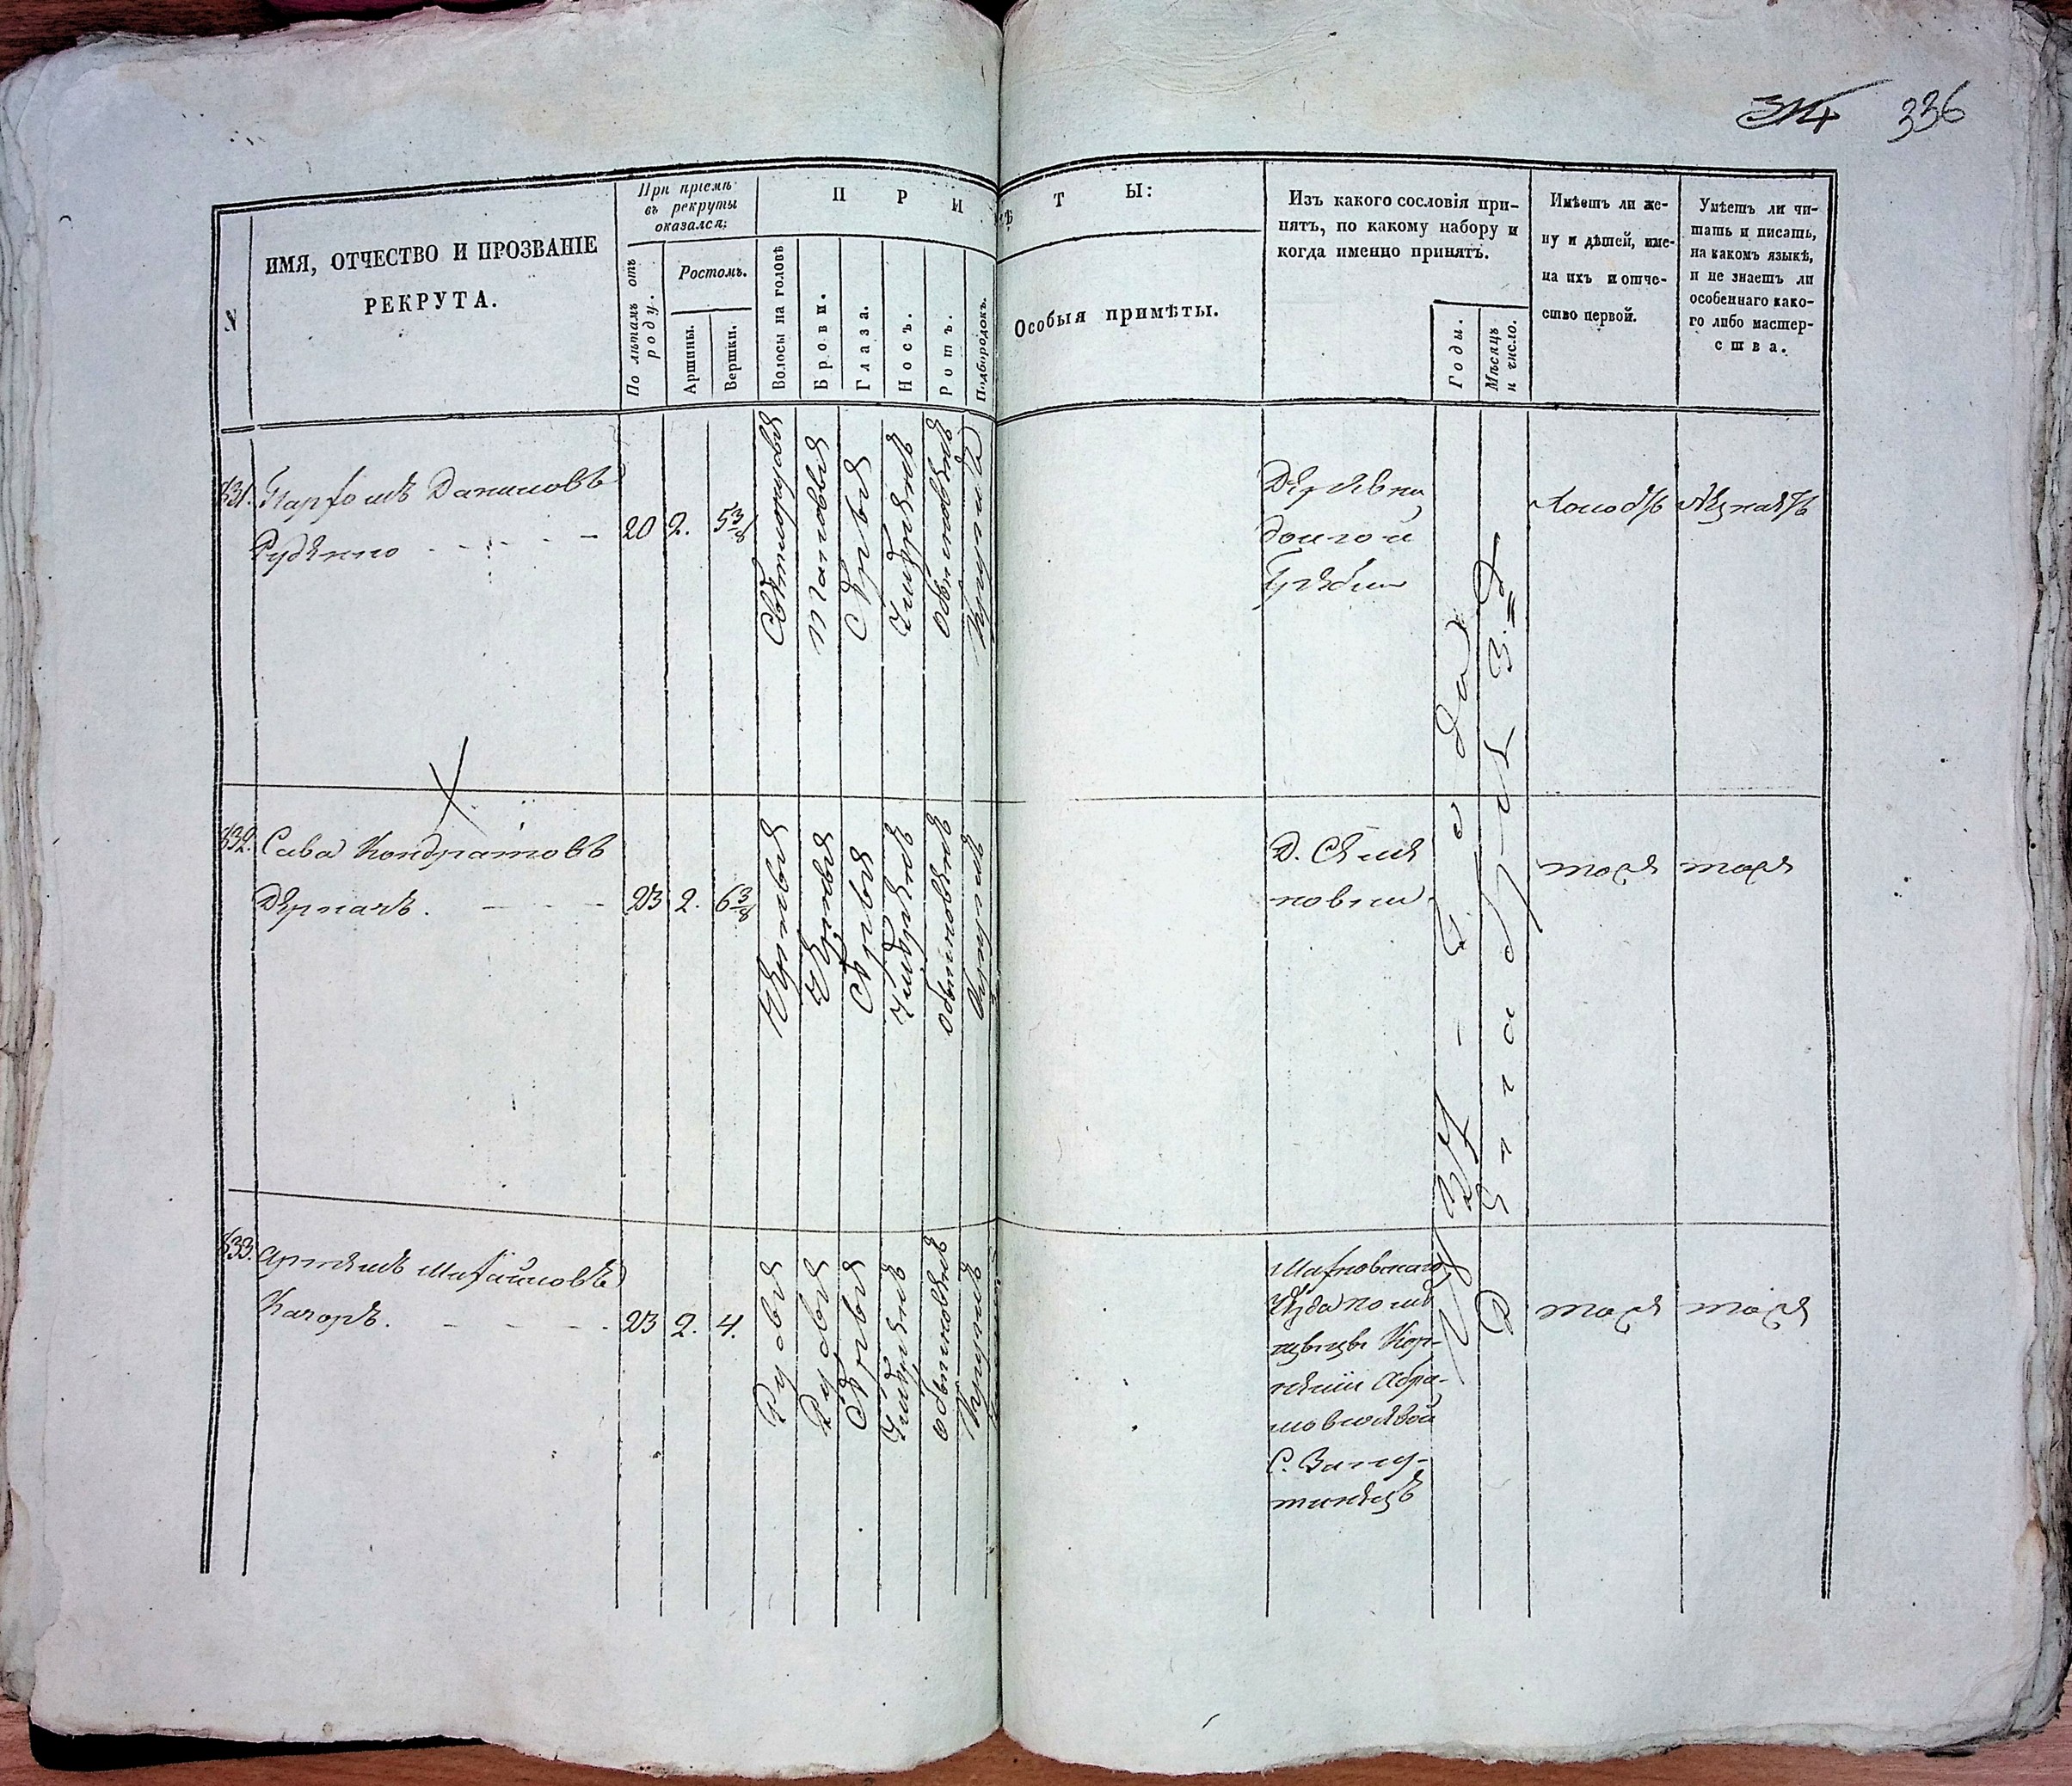 336
№
ИМЯ, ОТЧЕСТВО И ПРОЗВАНІЕ
РЕКРУТА.
При пріемѣ
въ рекруты
оказался:
По лѣтамъ отъ
роду.
Ростомъ.
Аршины.
Вершки.
П Р И М Ѣ Т Ы:
Волосы на головѣ
Брови.
Глаза.
Носъ.
Ротъ.
Подбородокъ.
Особыя примѣты.
Изъ какого сословія при-
нятъ, по какому набору и
когда именно принятъ.
Годы.
Мѣсяцъ
и число.
Имѣетъ ли же-
ну и дѣтей, име-
на ихъ и отче-
ство первой.
Умѣетъ ли чи-
тать и писать,
на какомъ языкѣ,
и не знаетъ ли
особеннаго како-
го либо мастер-
ства.
831. Парфомъ Даниловъ
Руденко
20 2. 5 3/8
Свѣтлорусые
таковые
Сѣрые
Умѣренъ
обыкновенъ
Кругла
Деревни
долгой
Гребли
Холостъ
Незнаетъ
832. Сава Кондратовъ
Деркачъ.
23 2. 6 3/8
Черные
Черные
Сѣрые
Умѣренъ
обыкновенъ
Круглъ
Д. Семе
новки
тоже
тоже
833. Артемъ Михайловъ
Качоръ.
23 2. 4.
Русые
Русые
Сѣрые
Умѣренъ
обыкновенъ
Круглъ
уѣзда помѣ
щицы Кор-
неліи Абра-
мовичевой
тоже
тоже
Декабря 3-го
года